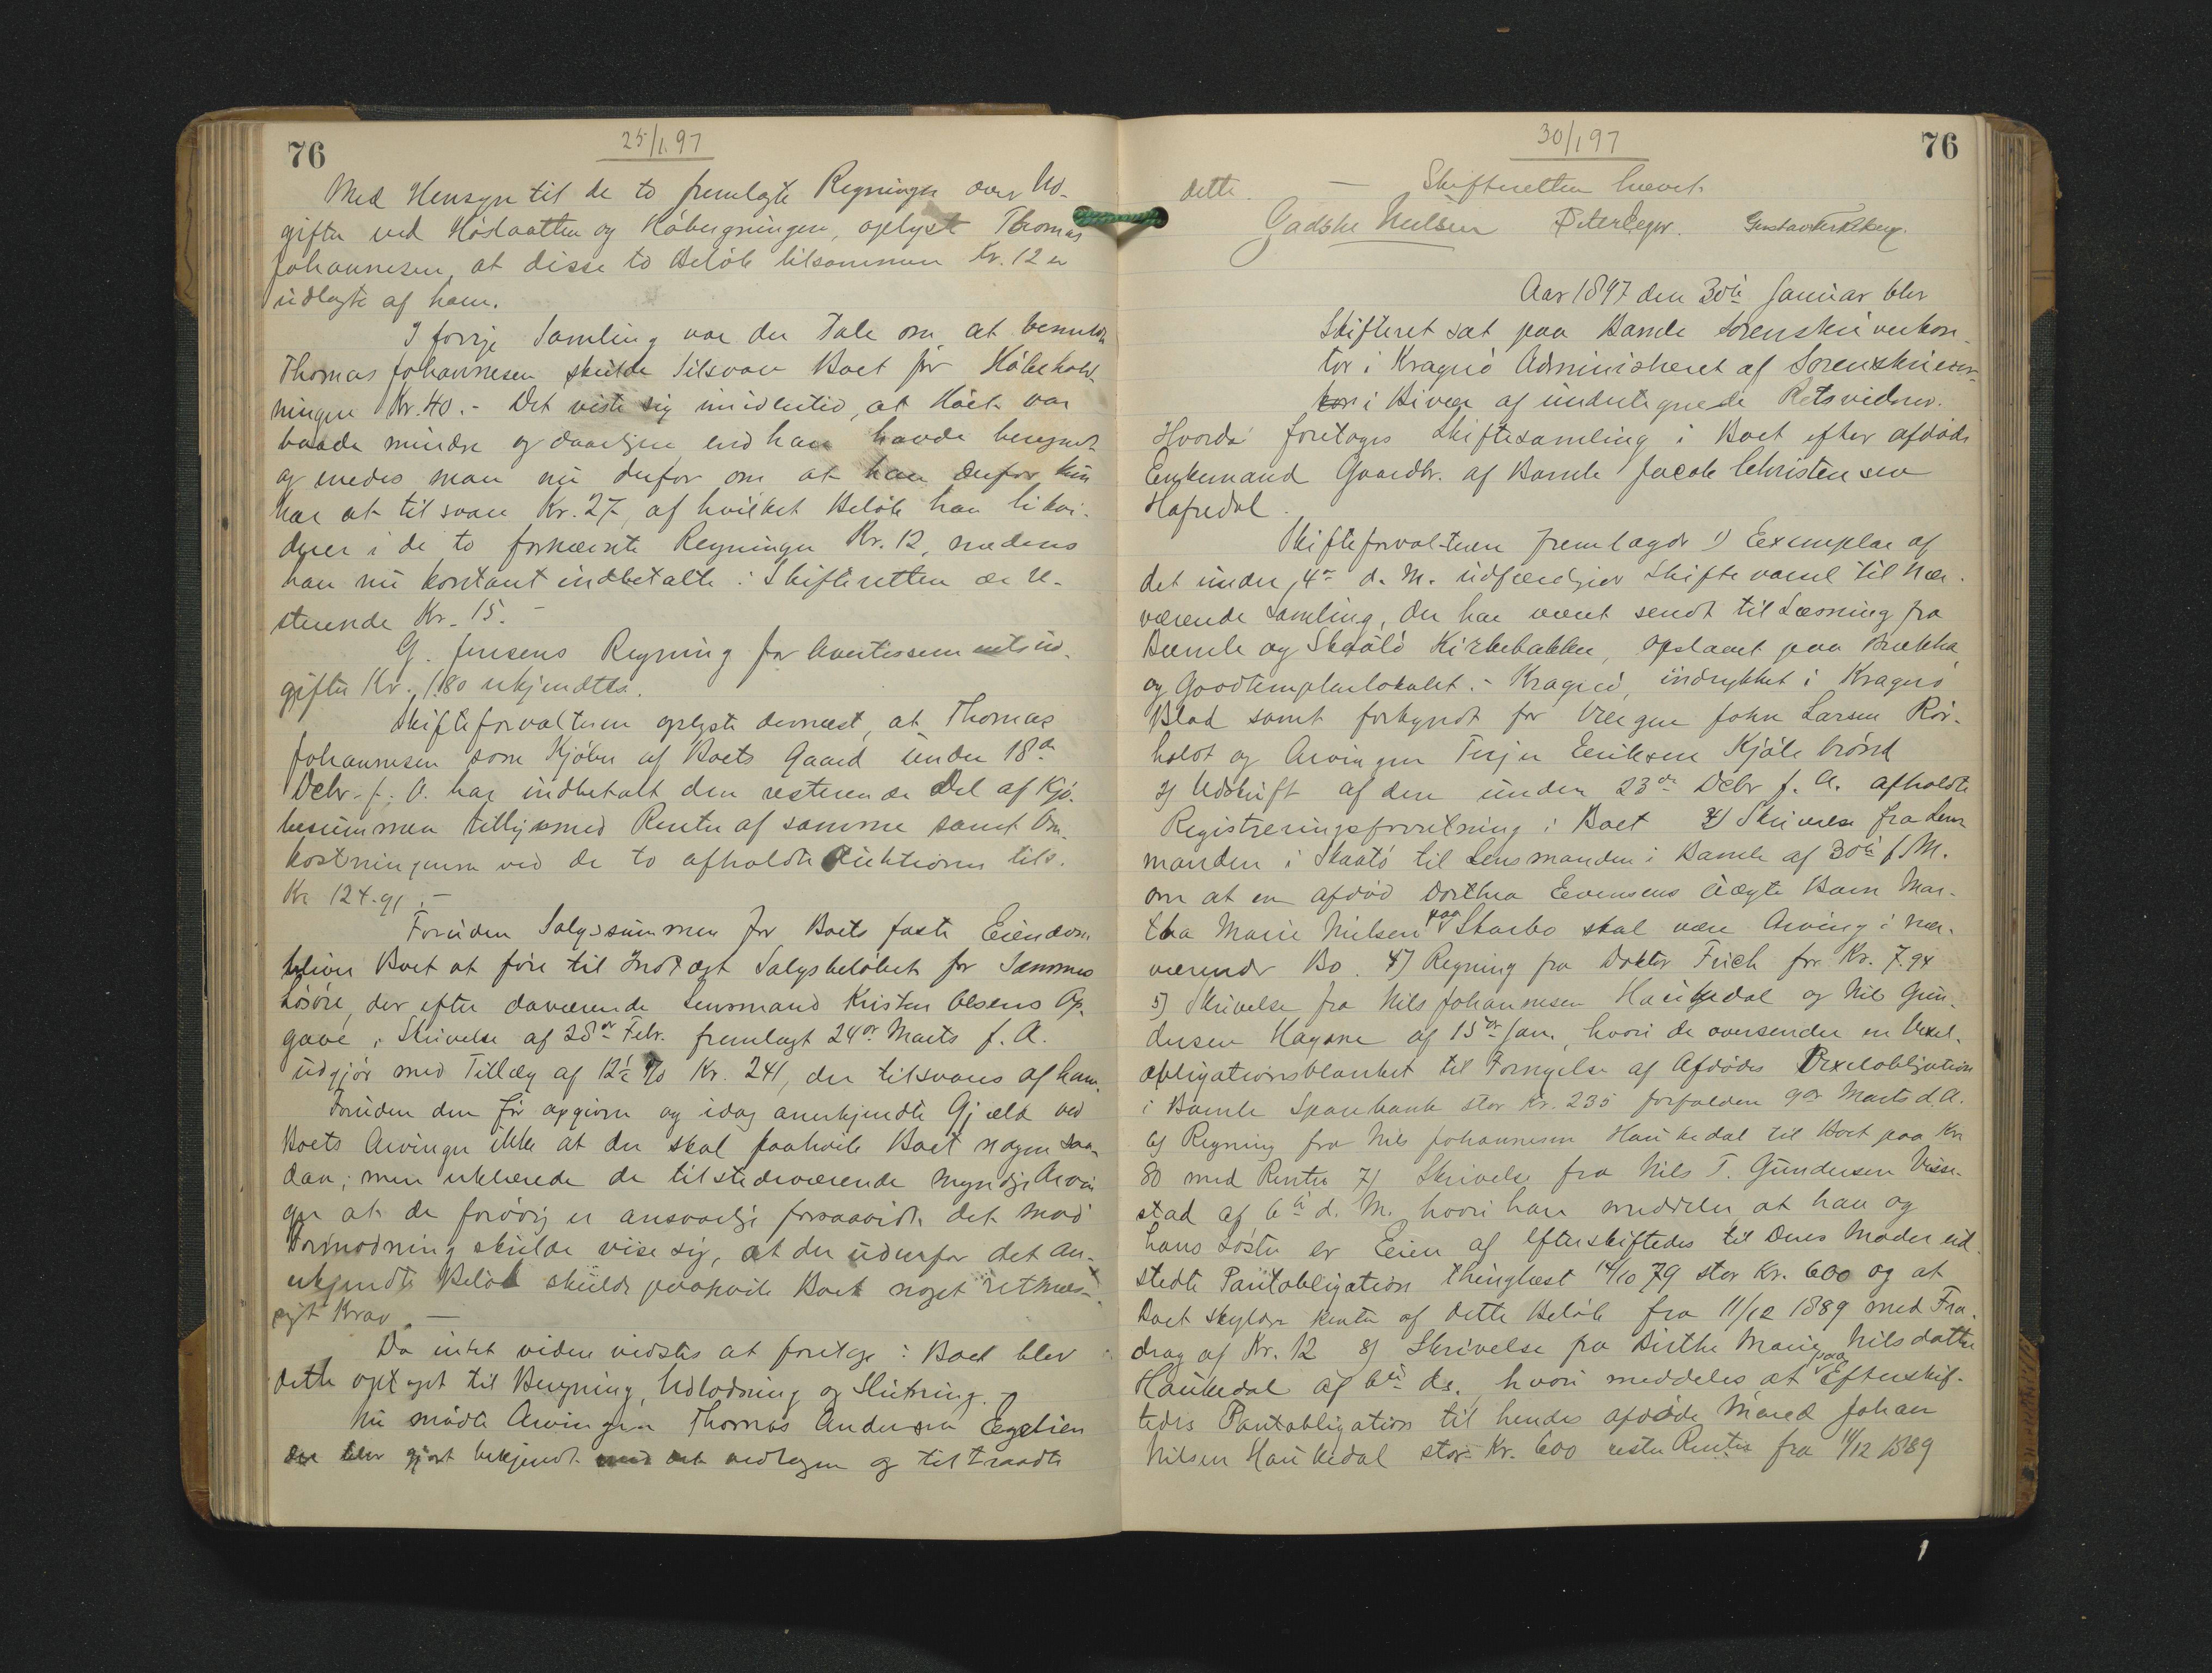 76
25/1.97
Med Hensyn til de to fremlagte Regninger over Ud-
gifter ved Höslaatten og Höbergningen, oplyste Thomas
Johannesen, at disse to Beløb tilsammen Kr. 12 er
udlagte af ham.
I forrige Samling var der Tale om at bemeldte
Thomas Johannesen skulde tilsvare Boet for Höbehold-
ningen Kr. 40.- Det viste sig imidlertid, at Höet var
baade mindre og daarligere end han havde beregnet
og enedes man nu derfor om at han derfor kun
har at tilsvare Kr. 27, af hvilket Beløb han likvi-
derer i de to fornævnte Regninger Kr. 12, medens
han nu kontant indbetalte i Skifteretten de re-
sterende Kr. 15.-
G. Jensens Regning for Avertissementsud-
gifter Kr. 1.80 erkjendtes.
Skifteforvalteren oplyste dernæst, at Thomas
Johannesen som Kjøber af Boets Gaard under 18de
Debr. f. A. har indbetalt den resterende Del af Kjö-
besummen tilligemed Renter af samme samt Om-
kostningerne ved de to afholdte Auktioner tils.
Kr. 124.91.-
Foruden Salgssummen for Boets faste Eiendom
bliver Boet at före til Indtægt Salgsbeløbet for Sammes
Lösöre, der efter daværende Lensmand Kristen Olsens Op-
gave i Skrivelse af 28de Febr. fremlagt 24de Marts f. A.
udgjör med Tillæg af 12½ % Kr. 241, der tilsvares af ham.
Foruden den før opgivne og idag anerkjendte Gjæld ved
Boets Arvinger ikke at der skal paahvile Boet nogen saa-
dan; men erklærede de tilstedeværende myndige Arvin-
ger at de forövrig er ansvarlige forsaavidt det mod
Formodning skulde vise sig, at der udenfor det An-
erkjendte Beløb skulde paahvile Boet noget retmæs-
sigt Krav.-
Da intet videre vidstes at foretage i Boet blev
dette optaget til Beregning, Udlodning og Slutning.-
Nu mödte Arvingen Thomas Andersen Eegelien
der blev gjort bekjendt med det vedtagne og tiltraadte
30/1 97
76
dette. — Skifteretten hævet.
Gadske Nielsen Peter Leger. Gustav
Aar 1897 den 30te Januar blev
Skifteret sat paa Bamle Sorenskriverkon-
tor i Kragerö Administreret af Sorenskriver-
en i Bivær af undertegnede Retsvidner.
Hvorda foretoges Skiftesamling i Boet efter afdöde
Enkemand Gaardbr. af Bamle Jacob Christensen
Hafredal.
Skifteforvalteren fremlagde 1) Exemplar af
det under 4de d. M. udfærdiget Skiftevarsel til nær-
værende Samling, der har været sendt til Læsning fra
Bamle og Skaatö Kirkebakker, opslaaet paa Brekka
og Goodtemplarlokalet i Kragerö, indrykket i Kragerö
Blad samt forkyndt for Værgen John Larsen Rör-
holdt og Arvingen Terjer Eeriksen Kjölebrönd
2) Udskrift af den under 23de Debr f. A. afholdte
Registreringsforretning i Boet 3) Skrivelse fra Lens-
manden i Skaatö til Lensmanden i Bamle af 30te f. M.
om at en afdöd Dorthea Evensens uægte Barn Mar-
tha Marie Nielsen paa Starbo skal være Arving i nær-
værende Bo. 4) Regning fra Doktor Fick for Kr. 7.94
5) Skrivelse fra Nils Johannesen Haukedal og Nils Gun-
dersen Hagane af 15de Jan., hvori de oversender en Vexel-
obligationsblanket til Fornyelse af Afdödes Vexelobligation
i Bamle Sparebank stor Kr. 235 forfalden 9de Marts d. A.
6) Regning fra Nils Johannesen Haukedal til Boet paa Kr
80 med Renter 7) Skrivelse fra Nils T. Gundersen Visse-
stad af 6te d. M. hvori han meddeler at han og
hans Söster er Eier af Efterskiftedes til Deres Moder ud-
stedte Pantobligation thinglæst 14/10 79 stor Kr. 600 og at
Boet skylder Renter af dette Beløb fra 11/12 1889 med Fra-
drag af Kr. 12 8) Skrivelse fra Birthe Marie Nilsdatter
Haukedal af 6te ds., hvori meddeles at paa Efterskif-
tedes Pantobligation til hendes afdöde Mand Johan
Nilsen Haukedal stor Kr. 600 rester Renter fra 11/12 1889